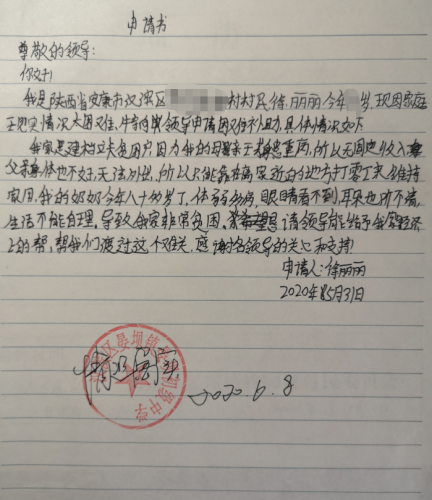 申请书
尊敬的领导:
你好!
我是陕西省安康市汉滨区 村村民徐丽丽今年 岁,现因家庭
出现实情况大困难,特向贵领导申请困难补助,具体情况如下
我家是建档立卡贫困户因为我的母亲 重病,所以无固定收入
父亲身体也不好,无法外出,所以只能靠在离家近的地方打零工来维持
家用,我的奶奶今年八十的岁了,体弱多病,眼睛看不到,耳朵也听不清,
生活不能自理,导致我家非常贫困。希望恳请领导能给予我家经济
上的帮,帮我们渡过这个难关,感谢各领导的关心和支持!
申请人:徐丽丽
2020年5月31日
情况属实
2020.6.8
区晏坝镇 初级中学